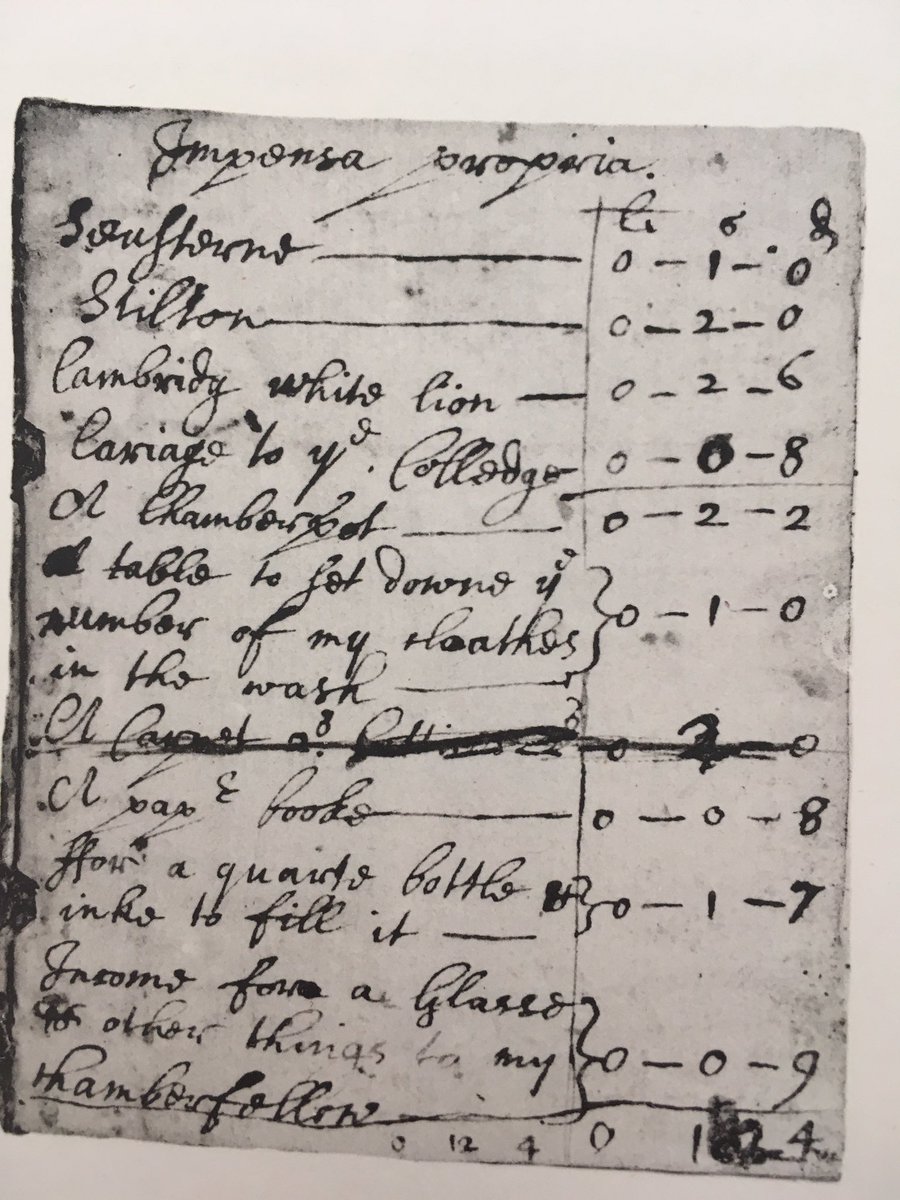 Impensa propria.
li s d
Seushterne 0 - 1 - 0
Stilton 0 - 2 - 0
Cambridg white lion 0 - 2 - 6
Cariage to yᵉ. Colledge 0 - 0 - 8
A Chamberpot 0 - 2 - 2
A table to set downe yᵉ
number of my cloathes 0 - 1 - 0
in the wash
A Carpet 0 2 0
A papʳ booke 0 - 0 - 8
ffor a quarte bottle &
inke to fill it 0 - 1 - 7
Income fore a Glasse
& other things to my 0 - 0 - 9
Chamberfellow
0 12 4 0 12 4